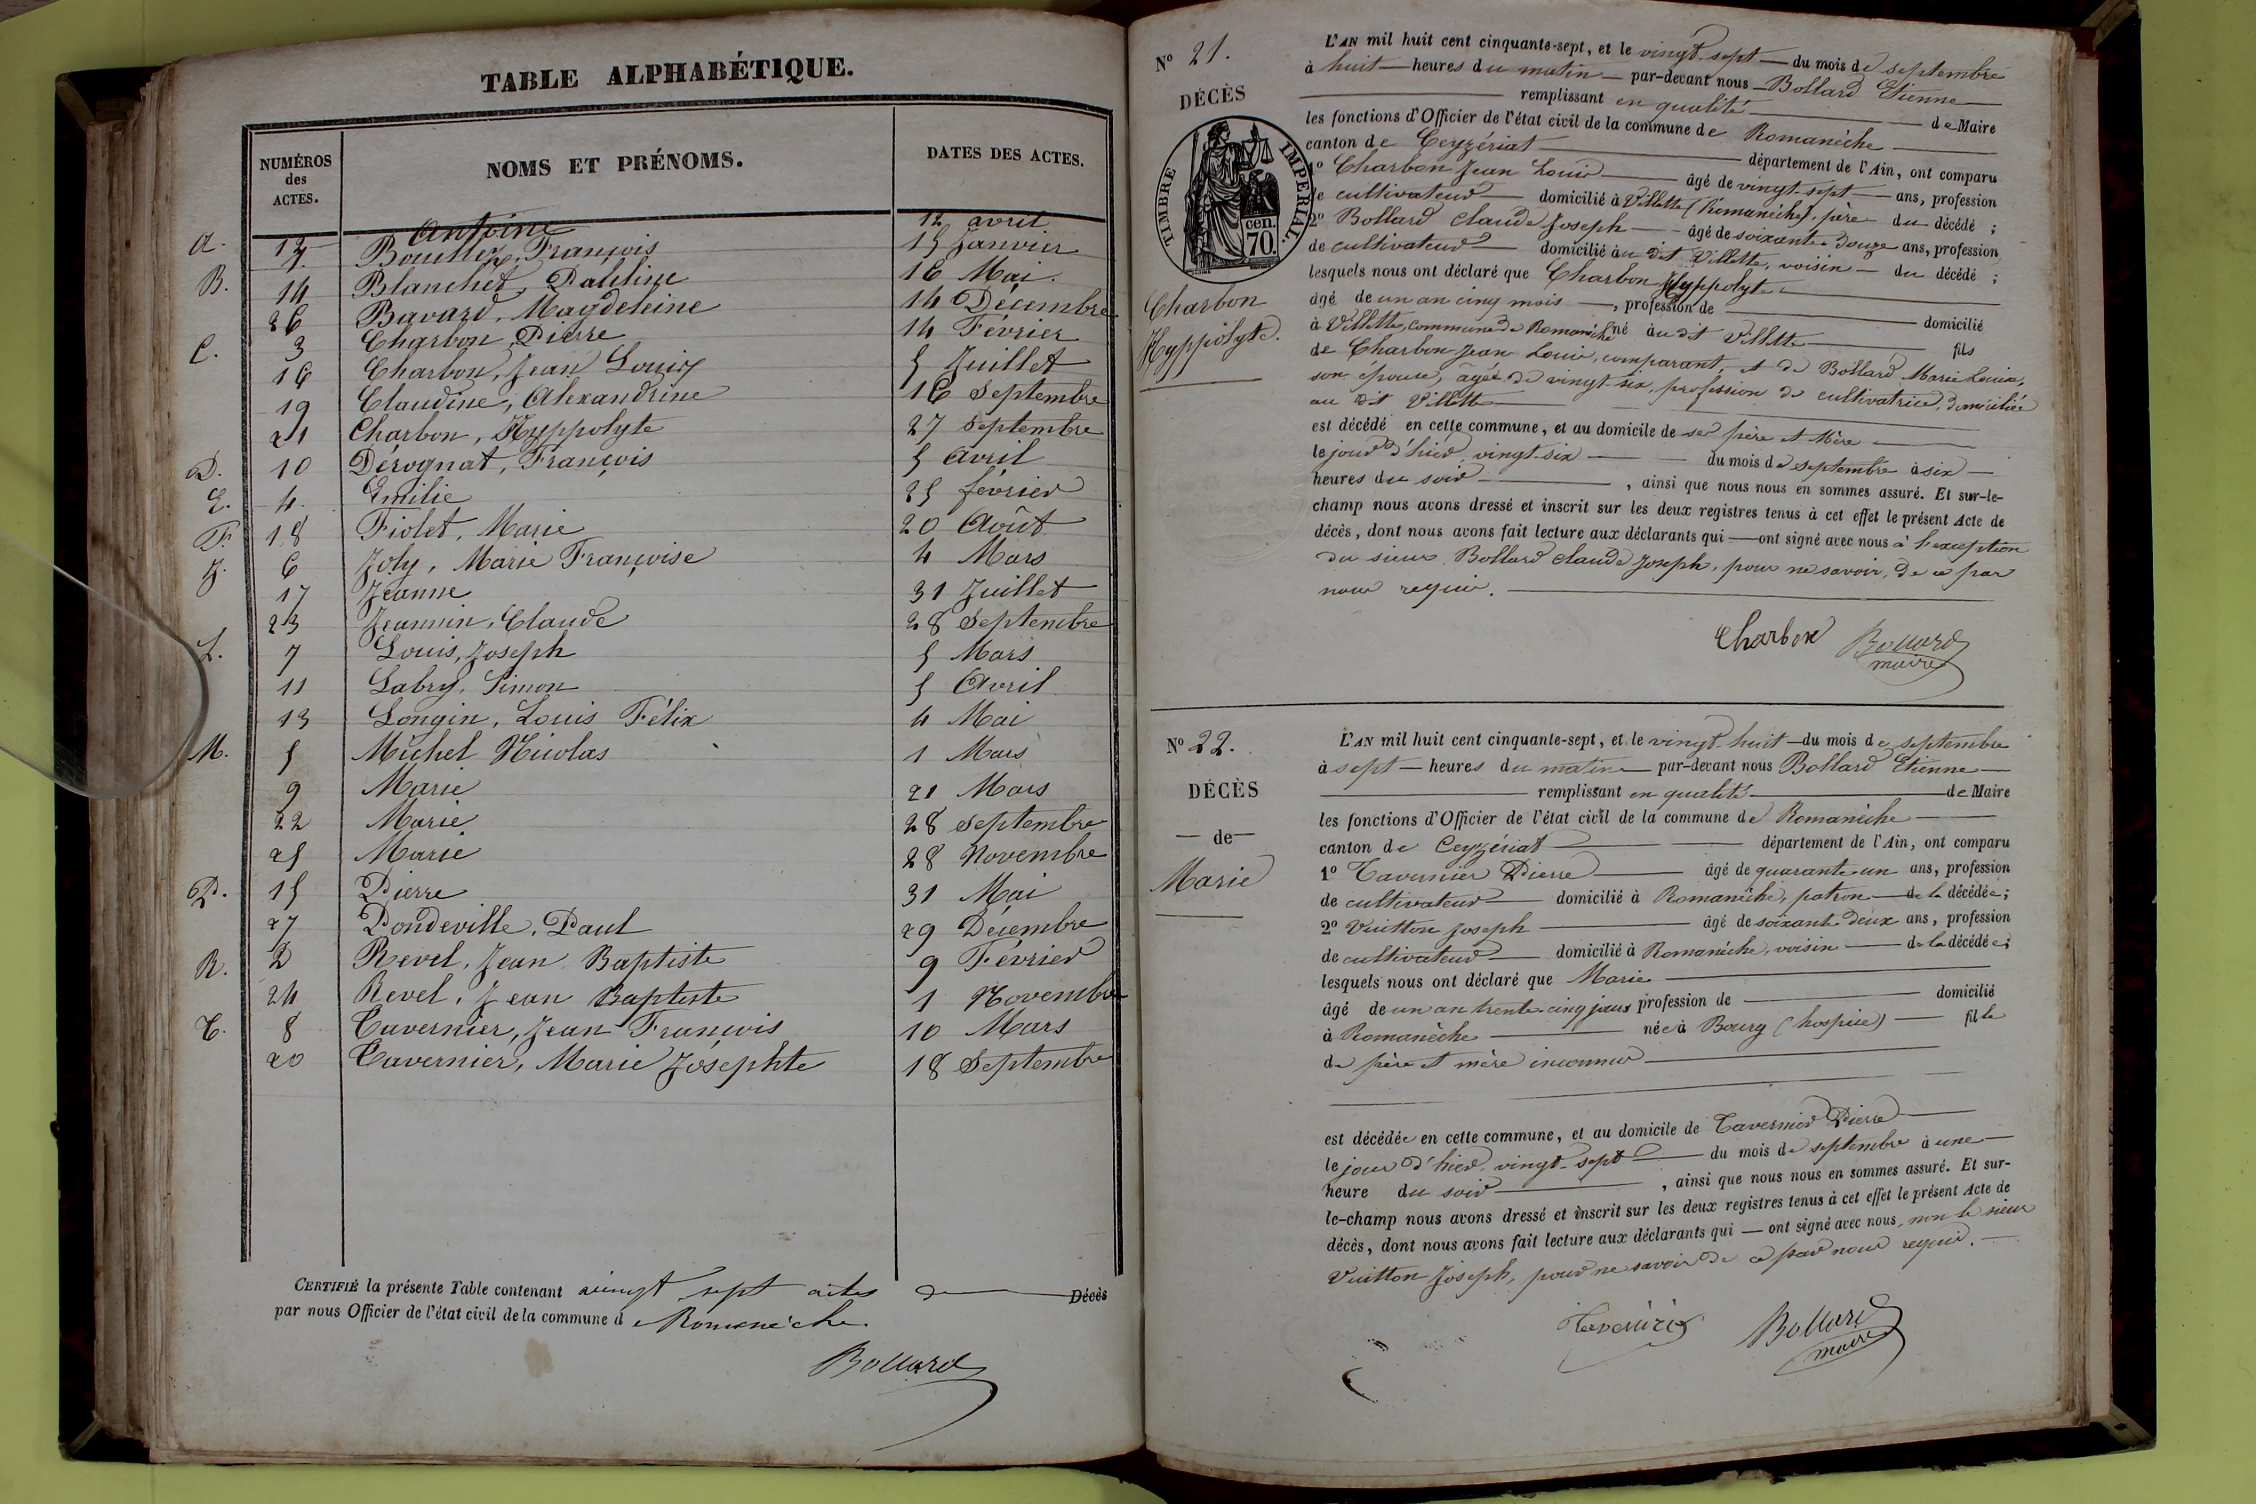 TABLE ALPHABÉTIQUE.
NUMÉROS des ACTES. NOMS ET PRÉNOMS. DATES DES ACTES.
A. 12 Antoine 12 avril
1 François 15 Janvier
B. 14 Blanchet, Pauline 16 Mai.
26 Bavard, Magdeleine 14 Décembre
C. 3 Charbon, Pierre 14 Février
16 Charbon, Jean Louis 5 Juillet
19 Claudine, Alexandrine 16 Septembre
21 Charbon, Hyppolyte 27 Septembre
D. 10 Dérognat, François 5 Avril
E. 4. Emilie 25 février
F. 18 Fiolet, Marie 20 Août
J. 6 Joly, Marie Françoise 4 Mars
17 Jeanne 31 Juillet
23 Jeannin, Claude 28 Septembre
L. 7 Louis, Joseph 5 Mars
11 Labry, Simon 5 Avril
13 Longin, Louis Félix 4 Mai
M. 5 Michel Nicolas 1 Mars
9 Marie 21 Mars
22 Marie 28 Septembre
25 Marie 28 Novembre
P. 15 Pierre 31 Mai
27 Pondeville, Paul 29 Décembre
R. 2 Revel, Jean Baptiste 9 Février
24 Revel, Jean Baptiste 1 Novembre
T. 8 Tavernier, Jean François 10 Mars
20 Tavernier, Marie Josephte 18 Septembre
CERTIFIÉ la présente Table contenant vingt sept actes de Décès
par nous Officier de l'état civil de la commune de Romanèche.
Bollard
N° 21.
DÉCÈS
TIMBRE IMPÉRIAL.
70 cen.
Charbon
Hyppolyte.
L'AN mil huit cent cinquante-sept, et le vingt sept du mois de septembre
à huit heures du matin par-devant nous Bollard Etienne
remplissant en qualité de Maire
les fonctions d'Officier de l'état civil de la commune de Romanèche
canton de Ceyzériat département de l'Ain, ont comparu
1° Charbon Jean Louis âgé de vingt-sept ans, profession
de cultivateur domicilié à Villette (Romanèche), père du décédé ;
2° Bollard Claude Joseph âgé de soixante douze ans, profession
de cultivateur domicilié au dit Villette, voisin du décédé ;
lesquels nous ont déclaré que Charbon Hyppolyte
âgé de un an cinq mois, profession de domicilié
à Villette, commune de Romanèche né au dit Villette fils
de Charbon Jean Louis, comparant, et de Bollard Marie Louise,
son épouse, âgée de vingt six, profession de cultivatrice, domiciliée
au dit Villette
est décédé en cette commune, et au domicile de ses père et Mère
le jour d'hier, vingt-six du mois de septembre à six
heures du soir, ainsi que nous nous en sommes assuré. Et sur-le-
champ nous avons dressé et inscrit sur les deux registres tenus à cet effet le présent Acte de
décès, dont nous avons fait lecture aux déclarants qui ont signé avec nous à l'exception
du sieur Bollard Claude Joseph, pour ne savoir, de ce par
nous requis.
Charbon Bollard
maire
N° 22.
DÉCÈS
de
Marie
L'AN mil huit cent cinquante-sept, et le vingt huit du mois de septembre
à sept heures du matin par-devant nous Bollard Etienne
remplissant en qualité de Maire
les fonctions d'Officier de l'état civil de la commune de Romanèche
canton de Ceyzériat département de l'Ain, ont comparu
1° Tavernier Pierre âgé de quarante-un ans, profession
de cultivateur domicilié à Romanèche, patron de la décédée ;
2° Vuitton Joseph âgé de soixante deux ans, profession
de cultivateur domicilié à Romanèche, voisin de la décédée ;
lesquels nous ont déclaré que Marie
âgé de un an trente-cinq jours profession de domicilié
à Romanèche née à Bourg (hospice) fille
de père et mère inconnus
est décédée en cette commune, et au domicile de Tavernier Pierre
le jour d'hier, vingt-sept du mois de septembre à une
heure du soir, ainsi que nous nous en sommes assuré. Et sur-
le-champ nous avons dressé et inscrit sur les deux registres tenus à cet effet le présent Acte de
décès, dont nous avons fait lecture aux déclarants qui ont signé avec nous, non le sieur
Vuitton Joseph, pour ne savoir de ce par nous requis.
Tavernier Bollard
maire